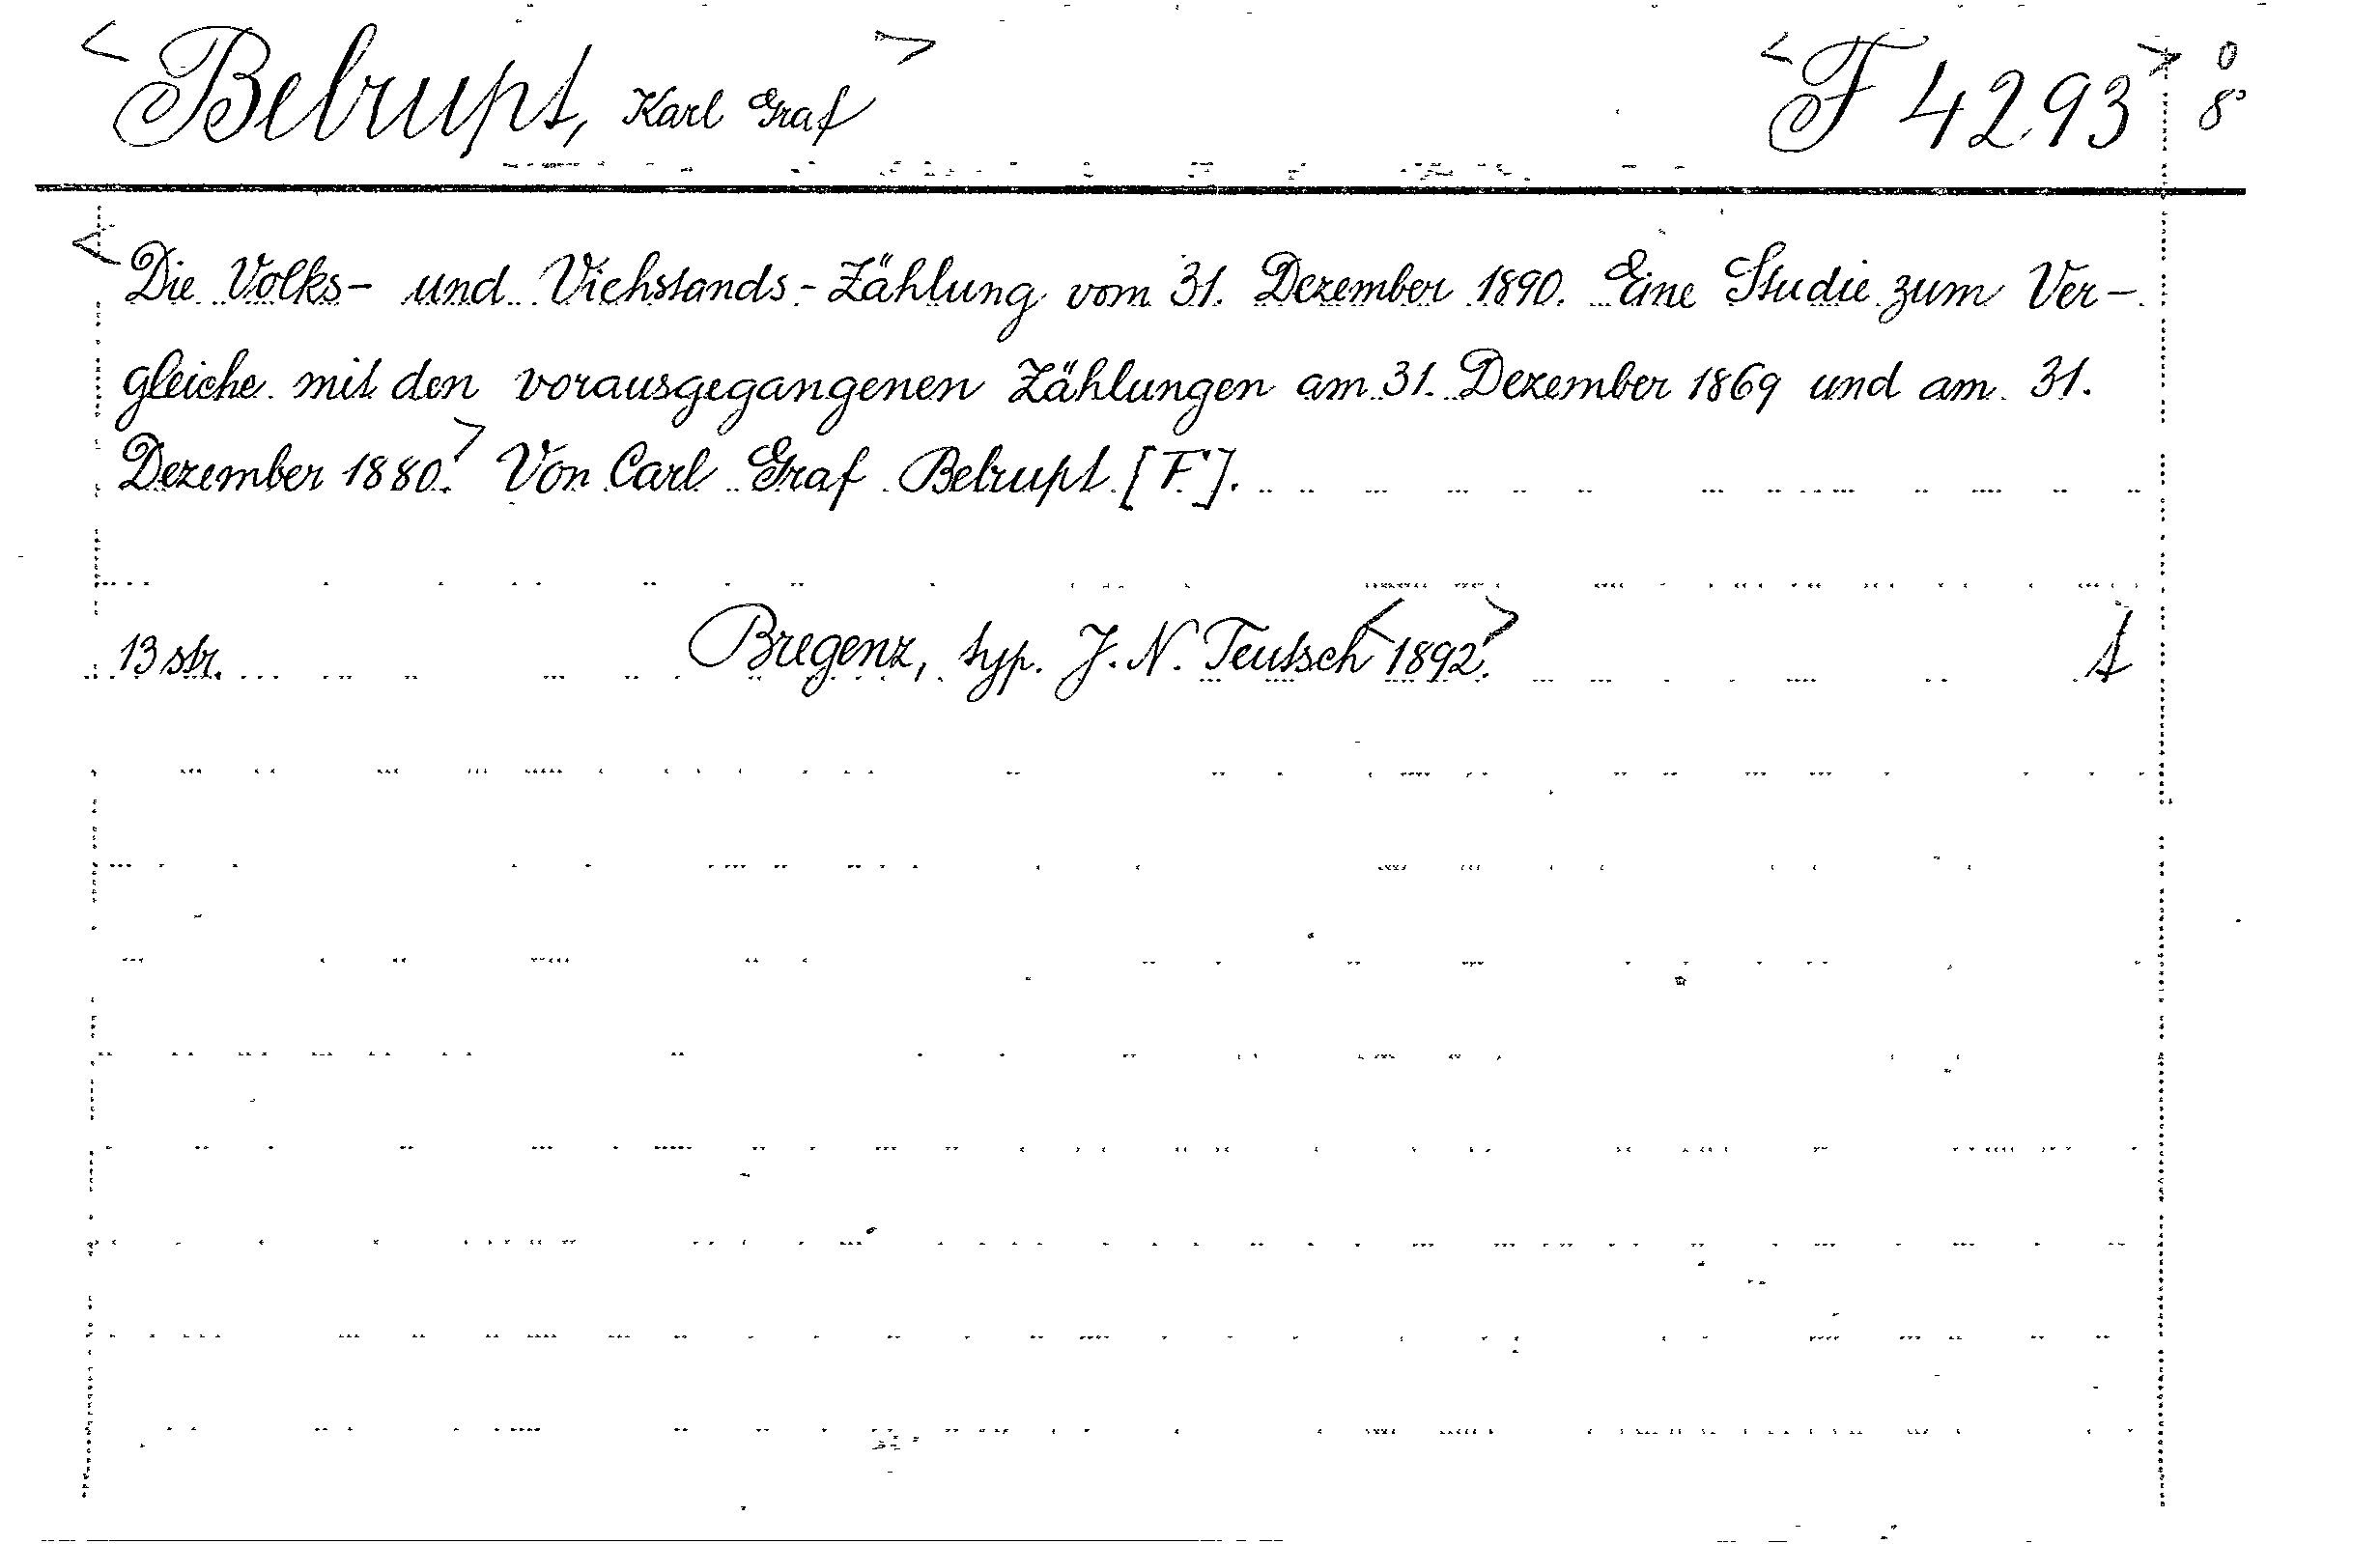 <Belrupt, Karl Graf> <F 4293> 0
8°
<Die Volks- und Viehstands-Zählung vom 31. Dezember 1890. Eine Studie zum Ver-
gleiche mit den vorausgegangenen Zählungen am 31. Dezember 1869 und am 31.
Dezember 1880.> Von Carl Graf Belrupt. [F].
13 str. Bregenz, typ. J. N. Teutsch <1892.>